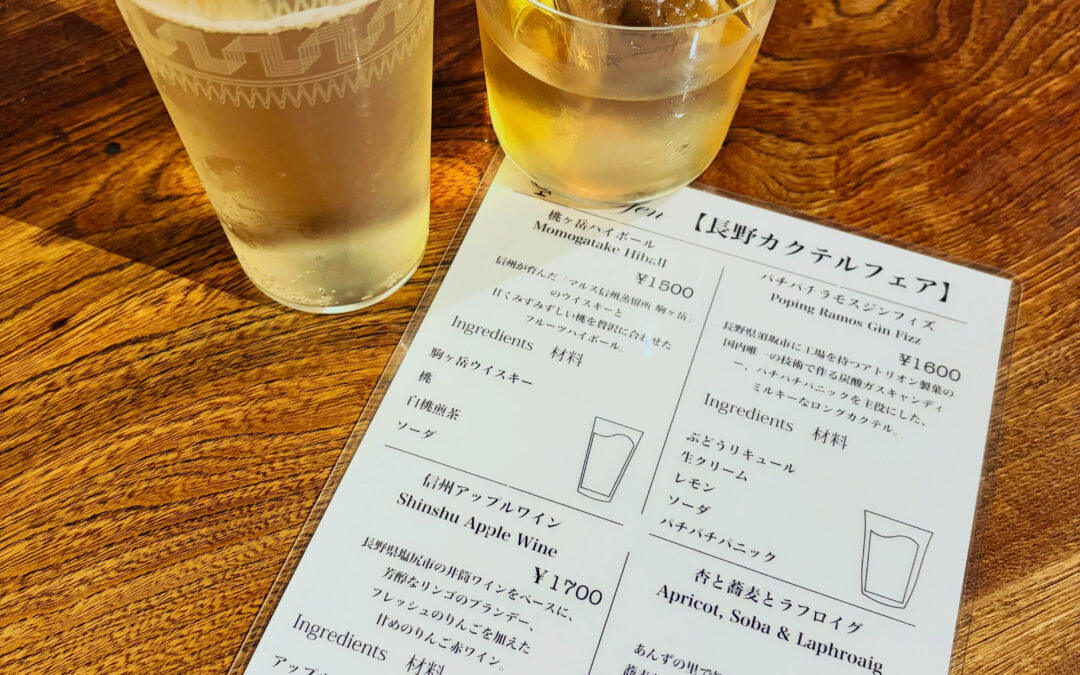 fen
【長野カクテルフェア】
桃ヶ岳ハイボール
Momogatake Hiball
¥1500
信州が育んだ「マルス信州蒸留所 駒ヶ岳」
のウイスキーと
甘くみずみずしい桃を贅沢に合わせた
フルーツハイボール。
Ingredients 材料
駒ヶ岳ウイスキー
桃
白桃煎茶
ソーダ
パチパチラモスジンフィズ
Poping Ramos Gin Fizz
¥1600
長野県須坂市に工場を持つアトリオン製菓の
国内唯一の技術で作る炭酸ガスキャンディ
ー、パチパチパニックを主役にした、
ミルキーなロングカクテル。
Ingredients 材料
ぶどうリキュール
生クリーム
レモン
ソーダ
パチパチパニック
信州アップルワイン
Shinshu Apple Wine
¥1700
長野県塩尻市の井筒ワインをベースに、
芳醇なリンゴのブランデー、
フレッシュのりんごを加えた
甘めのりんご赤ワイン。
Ingredients 材料
杏と蕎麦とラフロイグ
Apricot, Soba & Laphroaig
あんずの里で